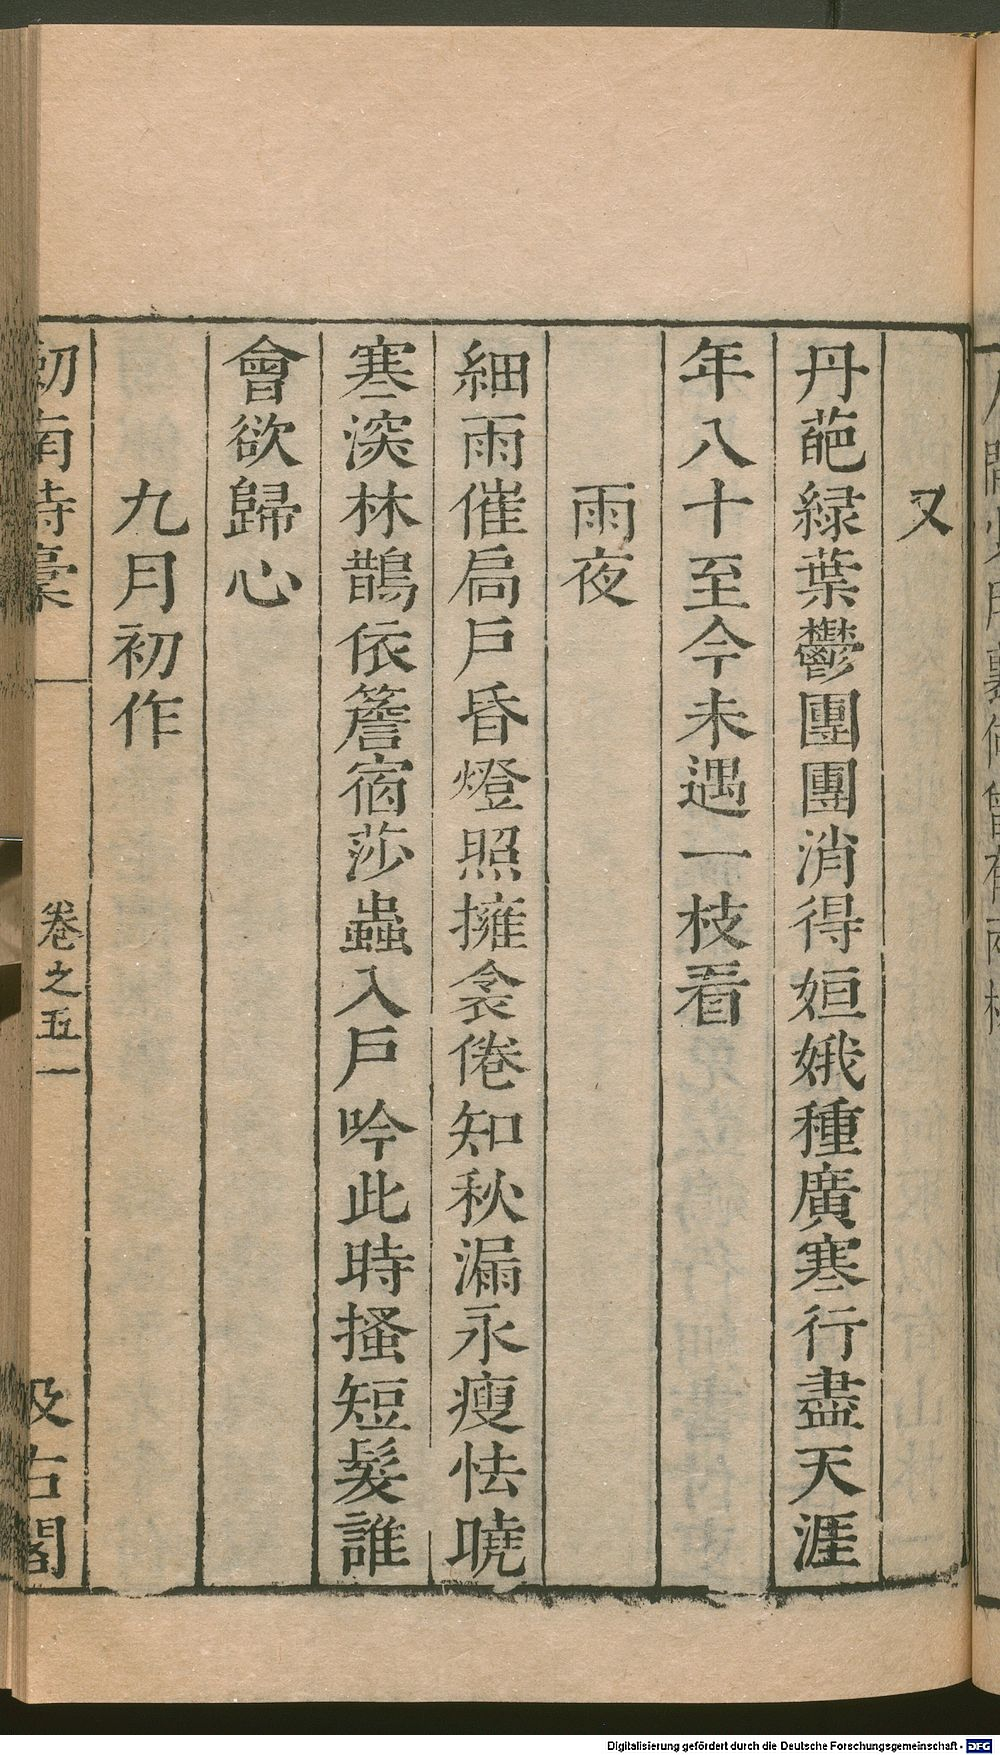 又
丹葩緑葉鬱團團消得姮娥種廣寒行盡天涯
年八十至今未遇一枝看
雨夜
細雨催扃戶昏燈照擁衾倦知秋漏永瘦怯曉
寒深林鵲依簷宿莎蟲入戶吟此時搔短髮誰
會欲歸心
九月初作
劒南詩藁
卷之五一
汲古閣
Digitalisierung gefördert durch die Deutsche Forschungsgemeinschaft - DFG